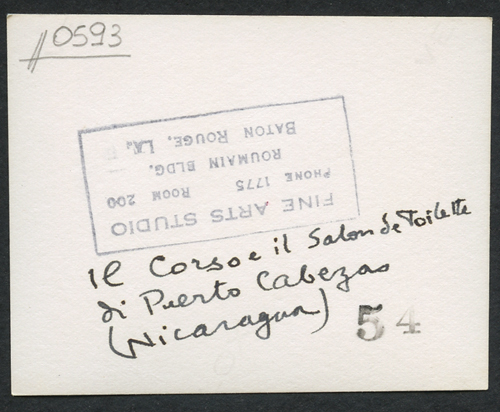 0593
FINE ARTS STUDIO
PHONE 1775 ROOM 200
ROUMAIN BLDG.
BATON ROUGE, LA.
Il Corso e il Salon de Toilette
di Puerto Cabezas
(Nicaragua)
54